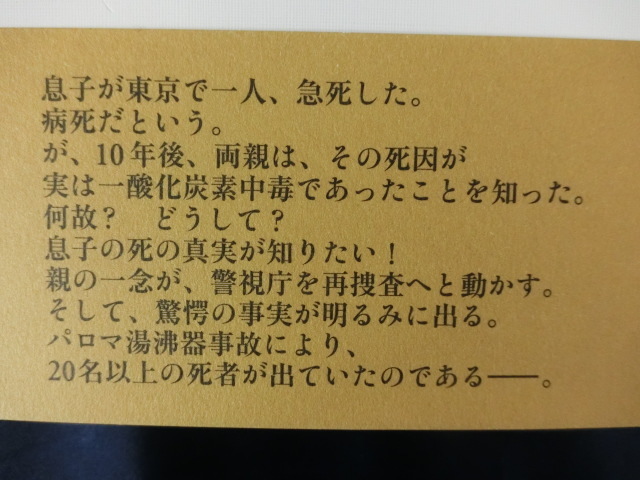 息子が東京で一人、急死した。
病死だという。
が、10年後、両親は、その死因が
実は一酸化炭素中毒であったことを知った。
何故？　どうして？
息子の死の真実が知りたい！
親の一念が、警視庁を再捜査へと動かす。
そして、驚愕の事実が明るみに出る。
パロマ湯沸器事故により、
20名以上の死者が出ていたのである――。